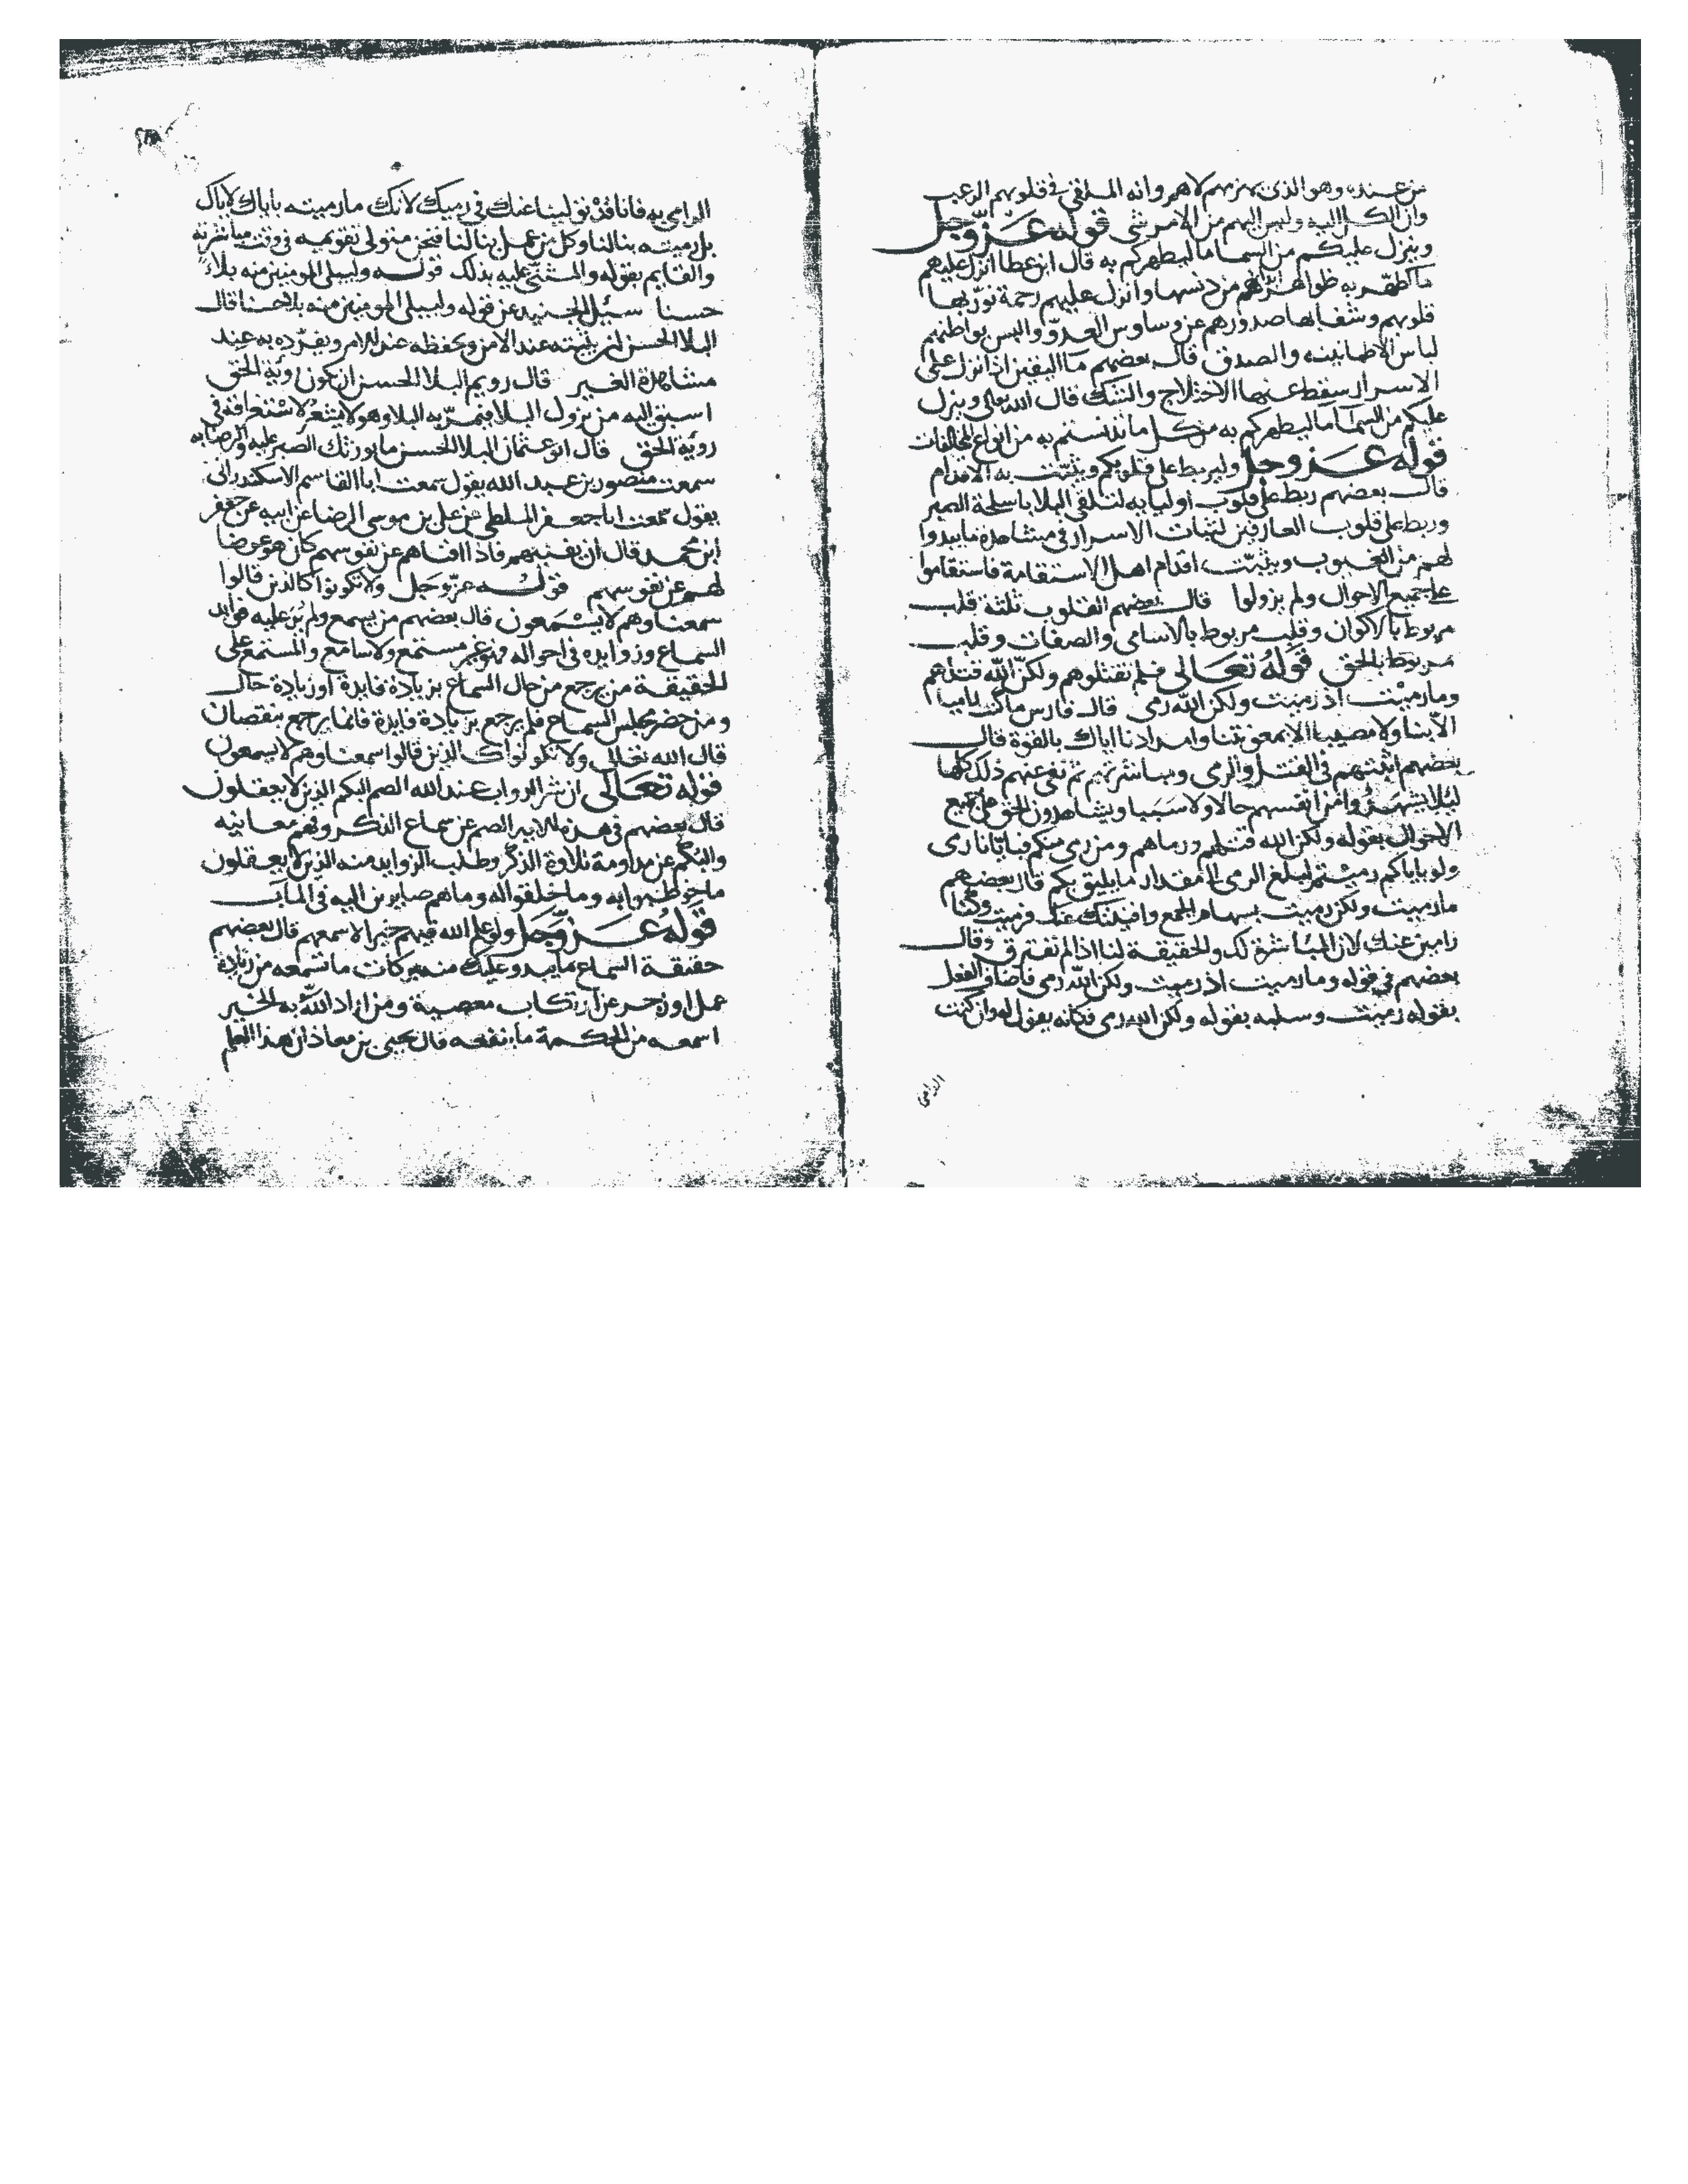 من عنده وهو الذى يهزمهم لا هم وانه الملقى فى قلوبهم الرعب
وان الكل اليه وليس اليهم من الامر شى قوله عز وجل
وينزل عليكم من السما ما ليطهركم به قال ابن عطا انزل عليهم
ما طهر به ظواهر من دنسها وانزل عليهم رحمة نور بها
قلوبهم وشفا بها صدورهم عن وساوس العدو والبس بواطنهم
لباس الاطمانينه والصدق قال بعضهم ما اليقين اذا نزل على
الاسرار سقط عنها الاختلاج والشك قال الله تعالى وينزل
عليكم من السما ما ليطهركم به من كل ما تدنستم به من انواع المخالفات
قوله عز وجل وليربط على قلوبكم ويثبت به الاقدام
قال بعضهم ربط على قلوب اوليايه لتلقى البلا باسلحة الصبر
وربط على قلوب العارفين لثبات الاسرار فى مشاهدة ما يبدوا
لهم من الغيوب ويثبت اقدام اهل الاستقامة فاستقاموا
على جميع الاحوال ولم يزولوا قال بعضهم القلوب ثلثة قلب
مربوط بالاكوان وقلب مربوط بالاسامى والصفات وقلب
مربوط بالحق قوله تعالى فلم تقتلوهم ولكن الله قتلهم
وما رميت اذ رميت ولكن الله رمى قال فارس ما كنت راميا
الا بنا ولا مصيبا الا بمعونتنا وامدادنا اياك بالقوة قال
بعضهم اثبتهم فى القتل والرمى ومباشرتهم ثم نفى عنهم ذلك كلها
ليلا يشهدوا من انفسهم حالا ولا سببا ويشاهدون الحق على جميع
الاحوال بقوله ولكن الله قتلهم ورماهم ومن رمى منكم فبايانا رمى
ولو باياكم رميتم لبلغ الرمى المقدار ما يليق بكم قال بعضهم
ما رميت ولكن رميت بسهام الجمع وافنيتك عنك فرميت وكنا
رامين عنك لان المباشرة لك والحقيقة لنا اذ لم تفترق وقال
بعضهم فى قوله وما رميت اذ رميت ولكن الله رمى فاضاف الفعل
بقوله رميت وسلبه بقوله ولكن الله رمى فكانه يقول له وان كنت
الرامى
الرامى به فانا قد تولينا عنك فى رميك لانك ما رميته باياك لاياك
بل رميته بنا لنا وكل من عمل بنا لنا فنحن متولى تقويمه فى وقت مباشرته
والقايم بقوله والمثنى عليه بذلك قوله وليبلى المومنين منه بلاء
حسنا سئل الجنيد عن قوله وليبلى المومنين منه بلا حسنا قال
البلا الحسن ان يثبته عند الامر ويحفظه عند الامر ويفرده به عند
مشاهدة الغير قال رويم البلا الحسن ان يكون رؤية الحق
اسبق اليه من نزول البلا فيمر به البلا وهو لا يشعر لاستغراقه فى
روية الحق قال ابو عثمان البلا الحسن ما يورثك الصبر عليه والرضا به
سمعت منصور بن عبد الله يقول سمعت ابا القاسم الاسكندرانى
يقول سمعت ابا جعفر الملطى عن على بن موسى الرضا عن ابيه عن جعفر
ابن محمد قال ان يفنيهم فاذا افناهم عن نفوسهم كان هو عوضا
لهم عن نفوسهم قوله عز وجل ولا تكونوا كالذين قالوا
سمعنا وهم لا يسمعون قال بعضهم من يسمع ولم ير عليه فوايد
السماع وزوايده فى احواله فهو غير مستمع ولا سامع والمستمع على
الحقيقة من يرجع من حال السماع بزيادة فايدة او زيادة حال
ومن حضر مجلس السماع فلم يرجع بزيادة فايدة فانما يرجع بنقصان
قال الله تعالى ولا تكونوا كالذين قالوا سمعنا وهم لا يسمعون
قوله تعالى ان شر الدواب عند الله الصم البكم الذين لا يعقلون
قال بعضهم فى هذه الاية الصم عن سماع الذكر وفهم معانيه
والبكم عن مداومة تلاوة الذكر وطلب الزوايد منه الذين لا يعقلون
ما خوطبوا به وما خلقوا له وما هم صايرين اليه فى الماب
قوله عز وجل ولو علم الله فيهم خيرا لاسمعهم قال بعضهم
حقيقة السماع ما يبدو عليك منه بركات ما تسمعه من زيادة
عمل او زجر عن ارتكاب معصية ومن اراد الله به الخير
اسمعه من الحكمة ما ينفعه قال يحيى بن معاذ ان هذا العلم